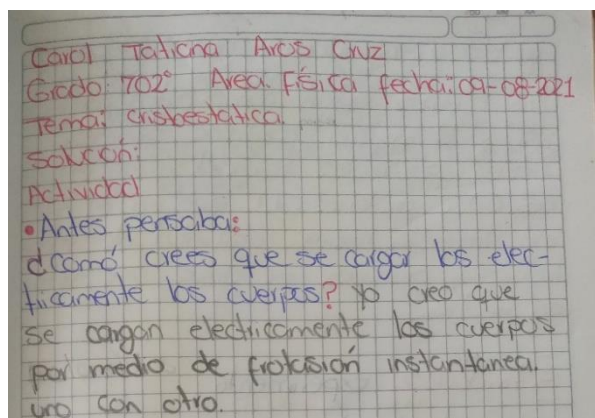 Carol Taticna Aros Cruz
Grado: 702° Area. Física fecha: 09-08-2021
Tema: crisbestática.
Solución:
Actividad
• Antes pensaba:
¿Comó crees que se cargar los elec-
tricamente los cuerpos? Yo creo que
se cargan electricamente los cuerpos
por medio de frotasión instantanea.
uno con otro.